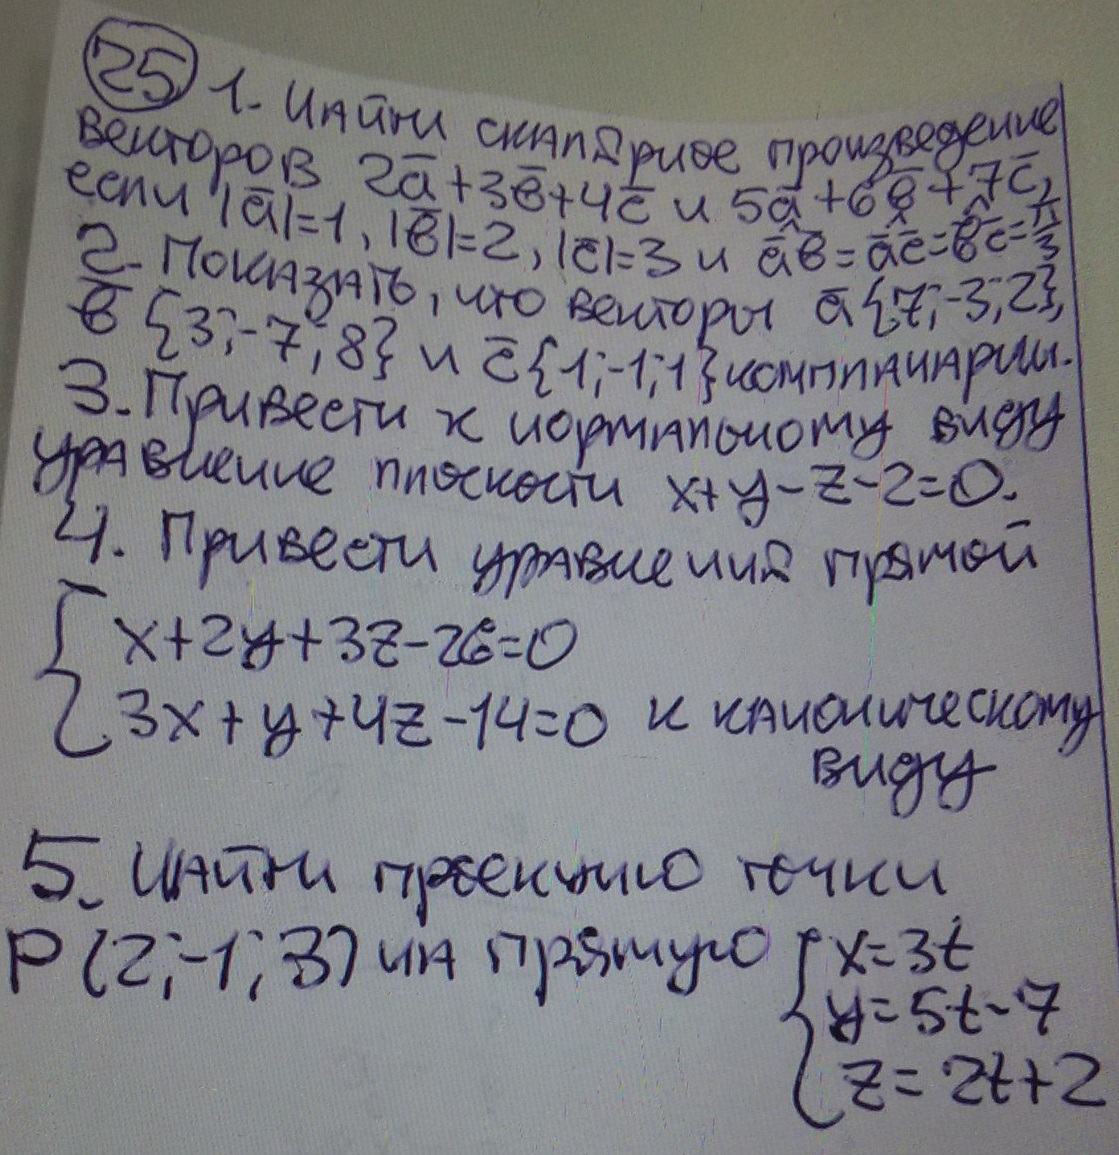 25 1. Найти скалярное произведение
векторов 2a̅+3b̅+4c̅ и 5a̅+6b̅+7c̅,
если |a̅|=1, |b̅|=2, |c̅|=3 и a̅^b̅=a̅^c̅=b̅^c̅=π/3
2. Показать, что векторы a̅{7;-3;2},
b̅{3;-7;8} и c̅{1;-1;1} компланарны.
3. Привести к нормальному виду
уравнение плоскости x+y-z-2=0.
4. Привести уравнения прямой
{ x+2y+3z-26=0
3x+y+4z-14=0 к каноническому
виду
5. Найти проекцию точки
P(2;-1;3) на прямую { x=3t
y=5t-7
z=2t+2